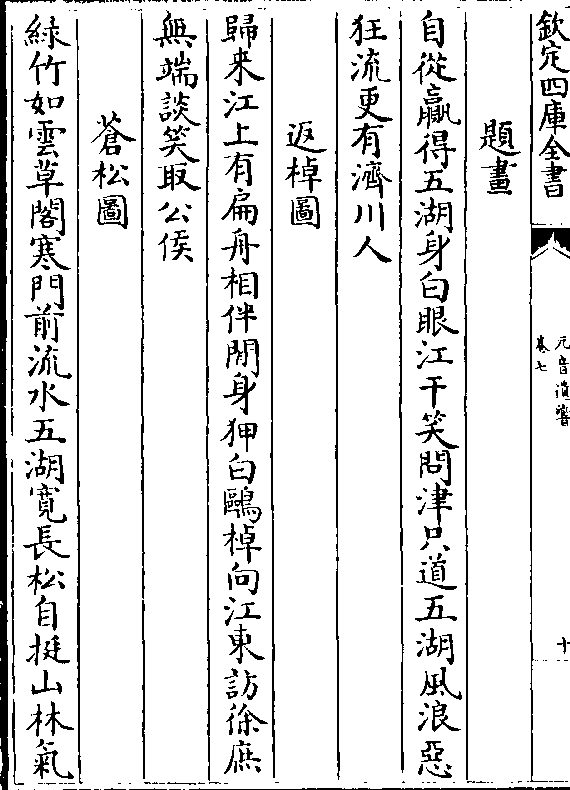 欽定四庫全書
元音遺響
卷七
十
題畫
自從贏得五湖身白眼江干笑問津只道五湖風浪惡
狂流更有濟川人
返棹圖
歸来江上有扁舟相伴閒身狎白鷗棹向江東訪徐庶
無端談笑取公侯
蒼松圖
緑竹如雲草閣寒門前流水五湖寛長松自挺山林氣